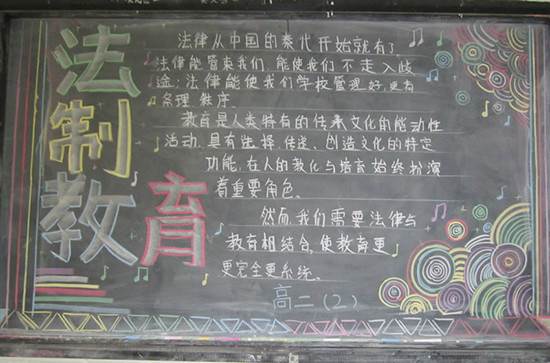 法制教育
法律从中国的秦代开始就有了,
法律能管束我们,能使我们不走入歧
途;法律能使我们学校管理好,更有
条理 秩序.
教育是人类特有的传承文化的能动性
活动,具有选择.传递、创造文化的特定
功能,在人的教化与培育始终扮演
着重要角色。
然而,我们需要法律与
教育相结合,使教育更
更完全更系统.
高二(2)